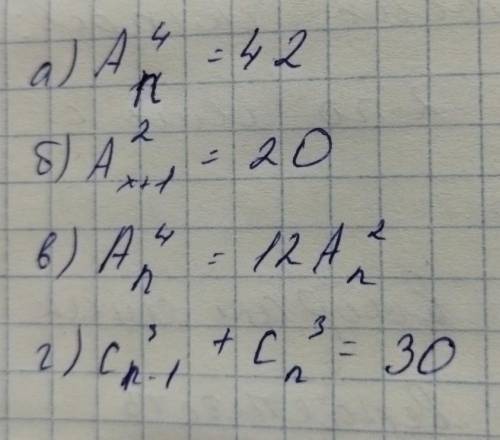 а) A_n^4 = 42
б) A_{x+1}^2 = 20
в) A_n^4 = 12A_n^2
г) C_{n-1}^3 + C_n^3 = 30